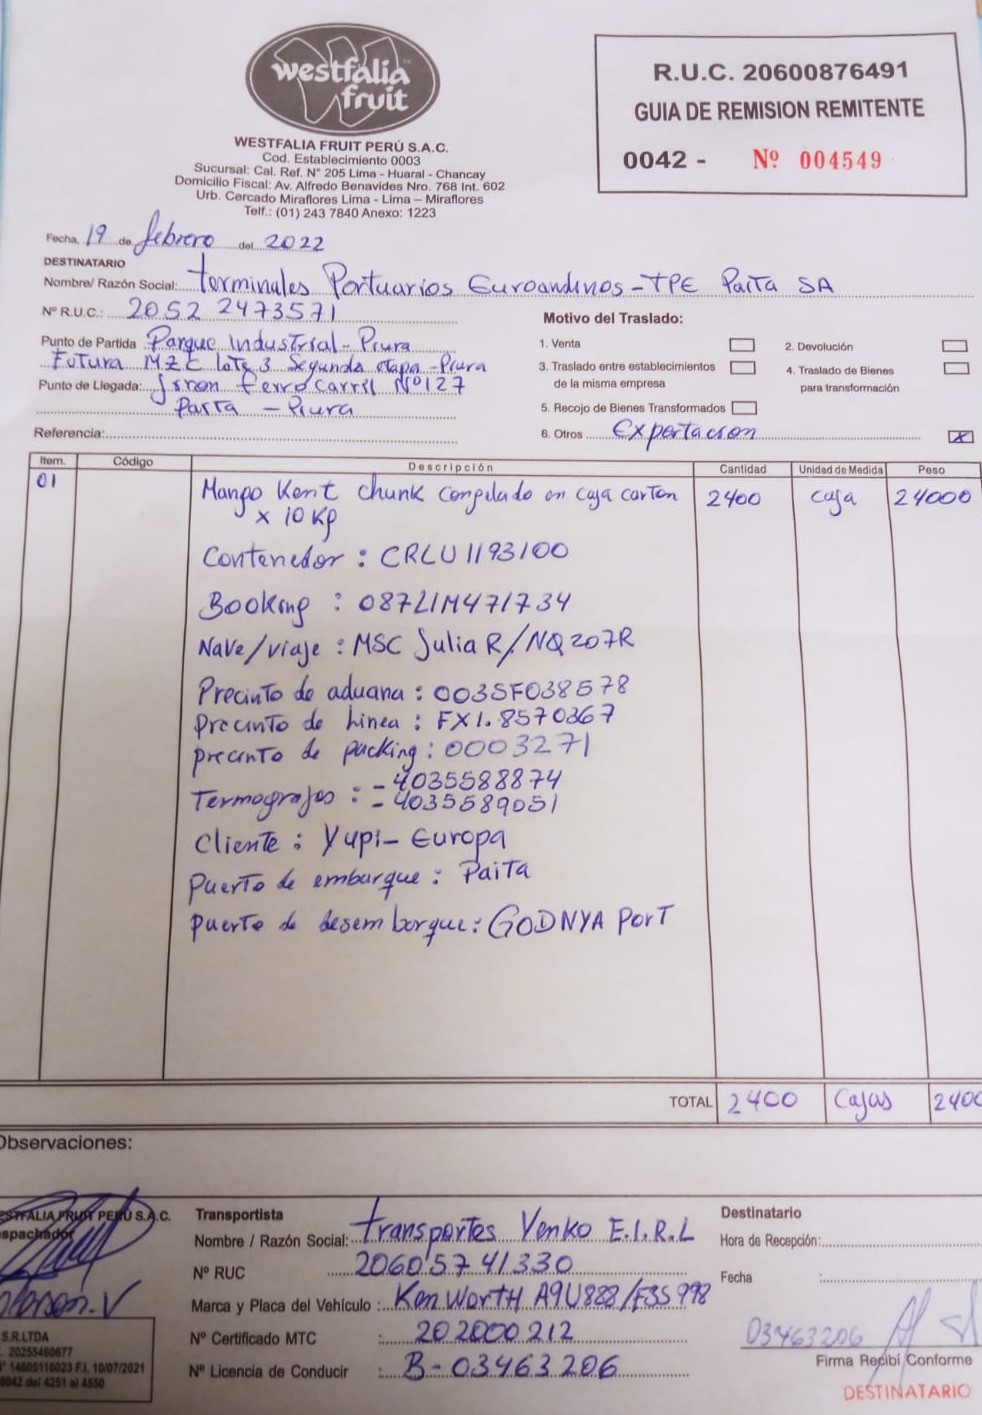 westfalia
fruit
WESTFALIA FRUIT PERÚ S.A.C.
Cod. Establecimiento 0003
Sucursal: Cal. Ref. N° 205 Lima - Huaral - Chancay
Domicilio Fiscal: Av. Alfredo Benavides Nro. 768 Int. 602
Urb. Cercado Miraflores Lima - Lima – Miraflores
Telf.: (01) 243 7840 Anexo: 1223
R.U.C. 20600876491
GUIA DE REMISION REMITENTE
0042 - Nº 004549
Fecha, 19 de febrero del 2022
DESTINATARIO
Nombre/ Razón Social: Terminales Portuarios Euroandinos - TPE Paita SA
Nº R.U.C.: 2052 2473571
Punto de Partida Parque Industrial - Piura
Futura MZC lote 3 Segunda etapa - Piura
Punto de Llegada: Jiron ferrocarril Nº 127
Paita - Piura
Referencia:
Motivo del Traslado:
1. Venta
2. Devolución
3. Traslado entre establecimientos
de la misma empresa
4. Traslado de Bienes
para transformación
5. Recojo de Bienes Transformados
6. Otros Exportacion X
Item. Código Descripción Cantidad Unidad de Medida Peso
01 Mango Kent chunk congelado en caja carton 2400 caja 24000
x 10 Kg
Contenedor : CRLU 1193100
Booking : 087LIM471734
Nave/viaje : MSC Julia R/NQ207R
Precinto de aduana : 0035F038578
Precinto de Linea : FX1.8570367
precinto de packing : 0003271
Termografos : - 4035588874
- 4035589051
Cliente : Yupi - Europa
Puerto de embarque : Paita
Puerto de desemborque : GODNYA PORT
TOTAL 2400 Cajas 2400
Observaciones:
ESTFALIA FRUIT PERÚ S.A.C.
espachador
S.R.LTDA
20255460677
14605116023 F.I. 10/07/2021
0042 del 4251 al 4550
Transportista
Nombre / Razón Social: Transportes Yenko E.I.R.L
Nº RUC 20605741330
Marca y Placa del Vehículo : KenWorth A9U888/F3S998
Nº Certificado MTC : 202000212
Nº Licencia de Conducir : B-03463206
Destinatario
Hora de Recepción:
Fecha :
03463206
Firma Recibí Conforme
DESTINATARIO